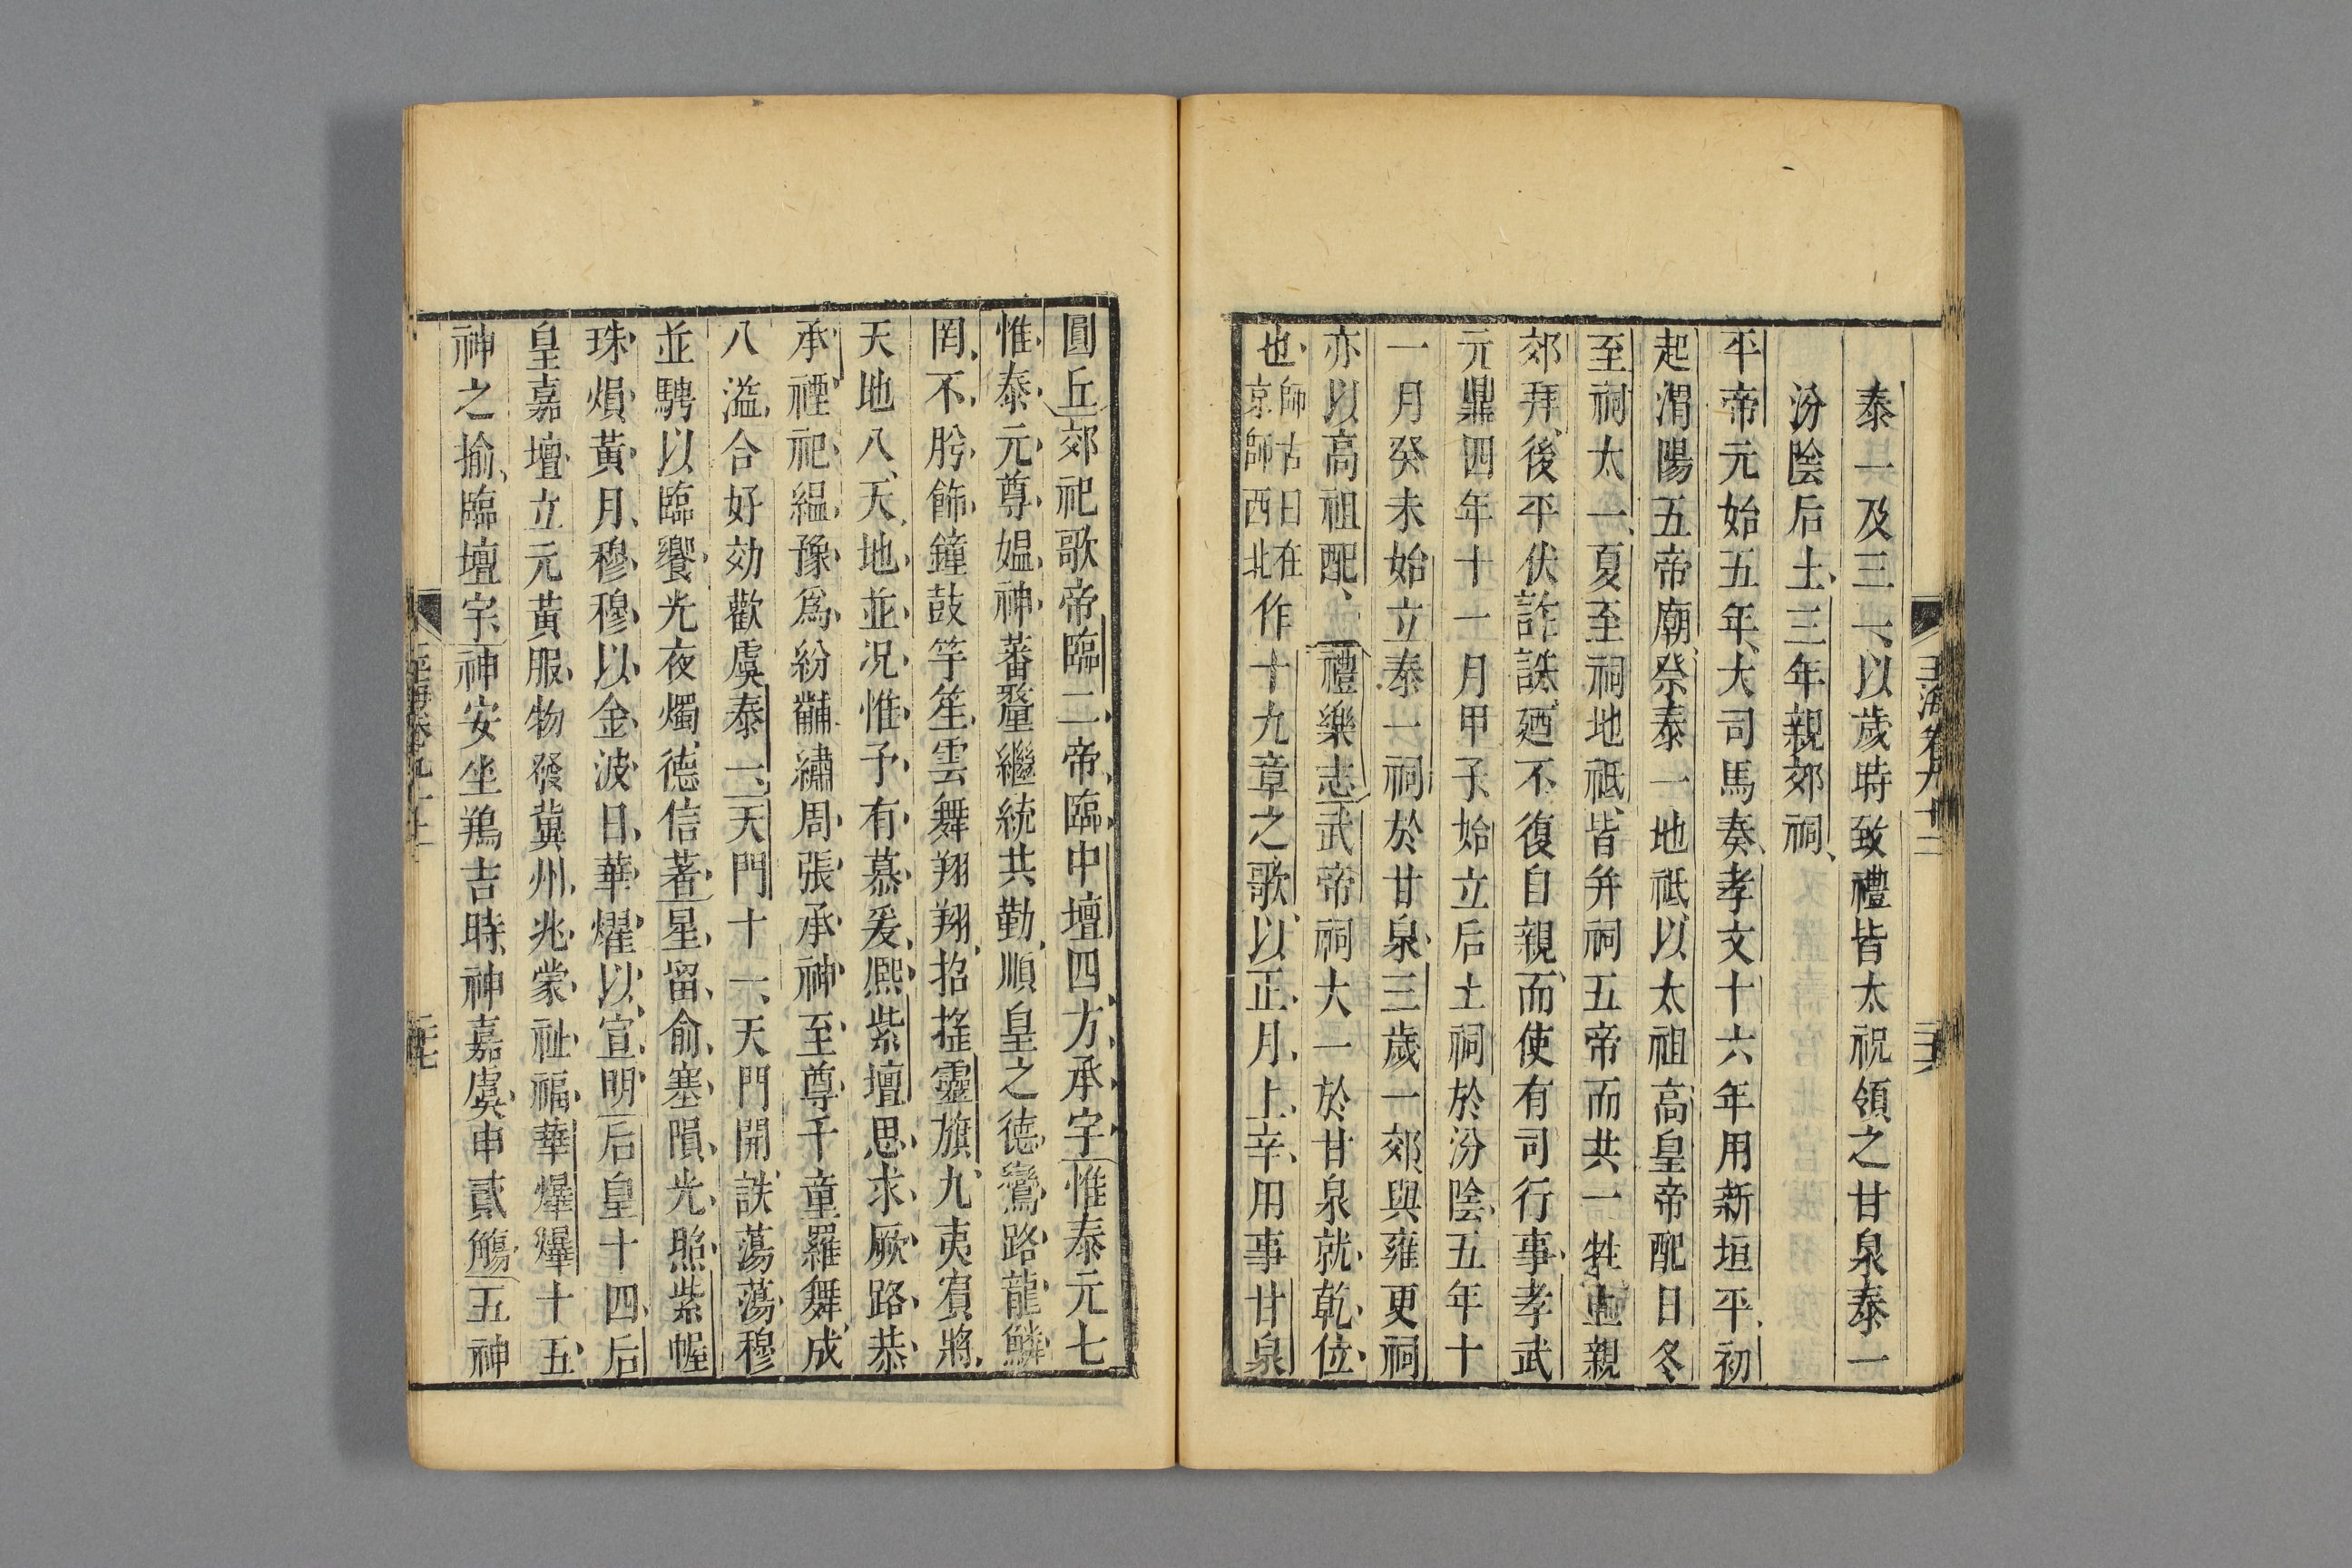 泰一及三一以歲時致禮皆太祝領之甘泉泰一
汾陰后土三年親郊祠
平帝元始五年大司馬奏孝文十六年用新垣平初
起渭陽五帝廟祭泰一地祇以太祖高皇帝配日冬
至祠太一夏至祠地祇皆并祠五帝而共一牲上親
郊拜後平伏詐誅廼不復自親而使有司行事孝武
元鼎四年十一月甲子始立后土祠於汾陰五年十
一月癸未始立泰一祠於甘泉三歲一郊與雍更祠
亦以高祖配禮樂志武帝祠大一於甘泉就乾位
也師古曰在京師西北作十九章之歌以正月上辛用事甘泉
圓丘郊祀歌帝臨二帝臨中壇四方承宇惟泰元七
惟泰元尊媪神蕃釐繼統共勤順皇之德鸞路龍鱗
罔不肹飾鐘鼓竽笙雲舞翔翔招搖靈旗九夷賓將
天地八天地並況惟予有慕爰熙紫壇思求厥路恭
承禋祀緼豫爲紛黼繡周張承神至尊千童羅舞成
八溢合好効歡虞泰一天門十一天門開詄蕩蕩穆
並騁以臨饗光夜燭德信著星留俞塞隕光照紫幄
珠熉黃月穆穆以金波日華燿以宣明后皇十四后
皇嘉壇立元黃服物發冀州兆蒙祉福華爗爗十五
神之揄臨壇宇神安坐鴹吉時神嘉虞申貳觴五神
玉海卷九十三